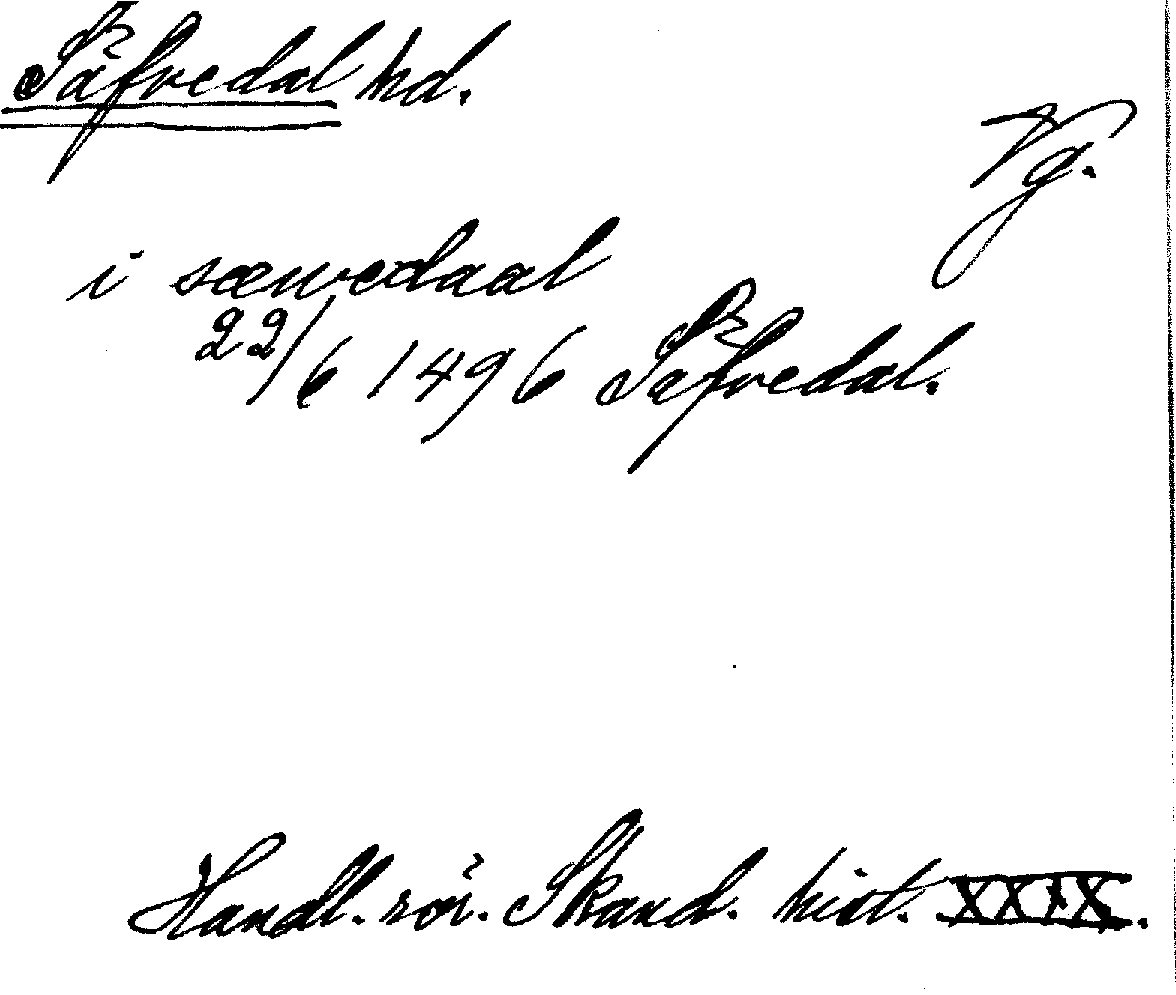 Säfvedal hd.
Vg.
i sæwedaal
22/6 1496 Säfvedal.
Handl. rör. Skand. hist. XXIX.